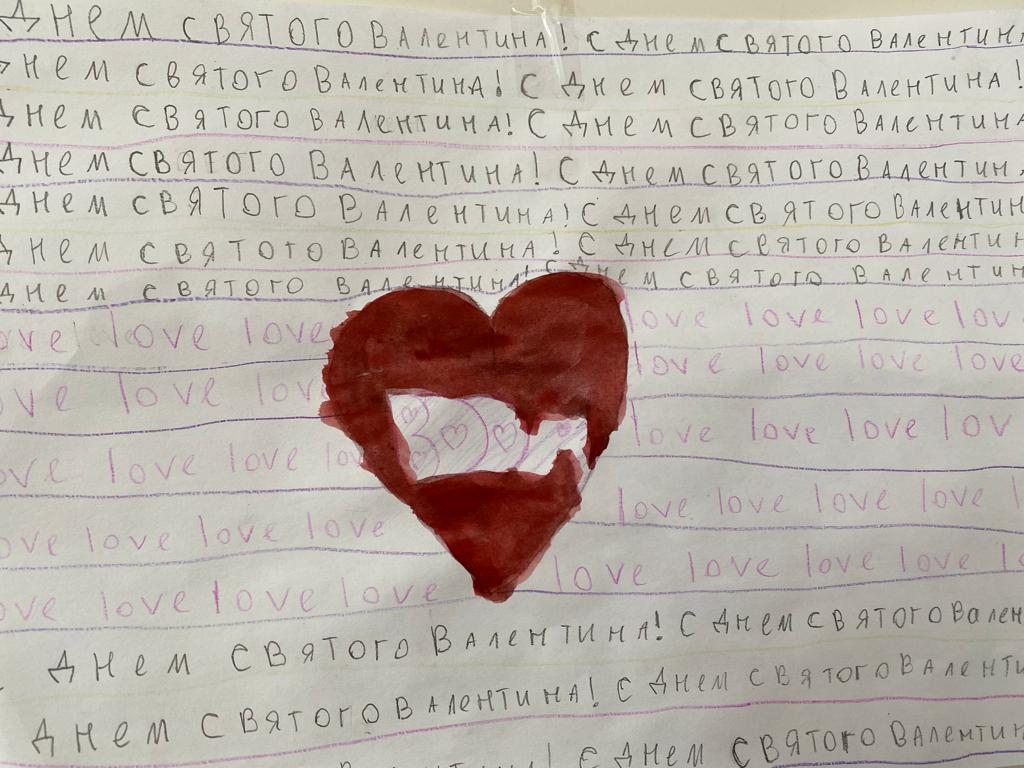 Днем святого Валентина! С Днем святого Валентин
Днем святого Валентина! С Днем святого Валентина!
Днем святого Валентина! С Днем святого Валентина
Днем святого Валентина! С Днем святого Валентин
Днем святого Валентина! С Днем святого Валентин
Днем святого Валентина! С Днем святого Валентин
Днем святого Валентина! С Днем святого Валентин
ove love love love love love lov
love love love love
ve love lov
love love love lov
ove love love lo
love love love love l
ove love love love
love love love love lo
ove love love love
Днем святого Валентина! С Днем святого Вален
Днем святого Валентина! С Днем святого Валенти
! С Днем святого Валентин